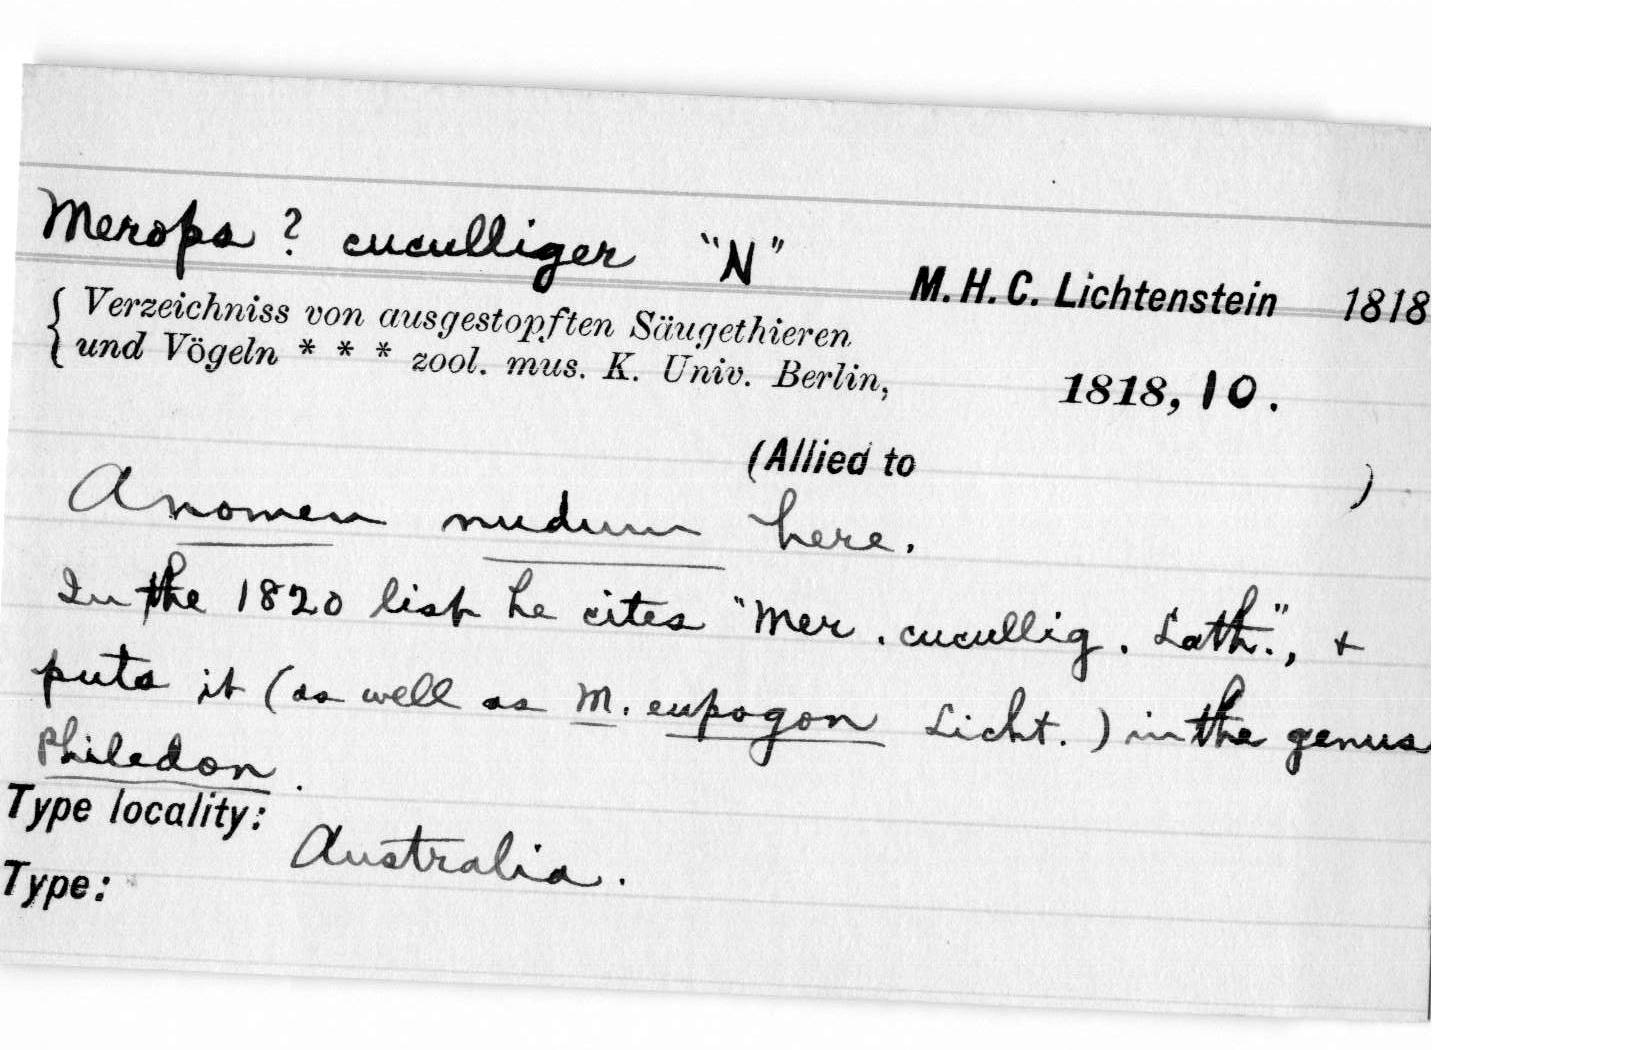 Merops ? cuculliger "N" M. H. C. Lichtenstein 1818
Verzeichniss von ausgestopften Säugethieren
und Vögeln * * * zool. mus. K. Univ. Berlin, 1818, 10.
(Allied to )
A nomen nudum here.
In the 1820 list he cites "Mer. cucullig. Lath.", +
puts it (as well as M. eupogon Licht.) in the genus
Philedon.
Type locality: Australia.
Type: